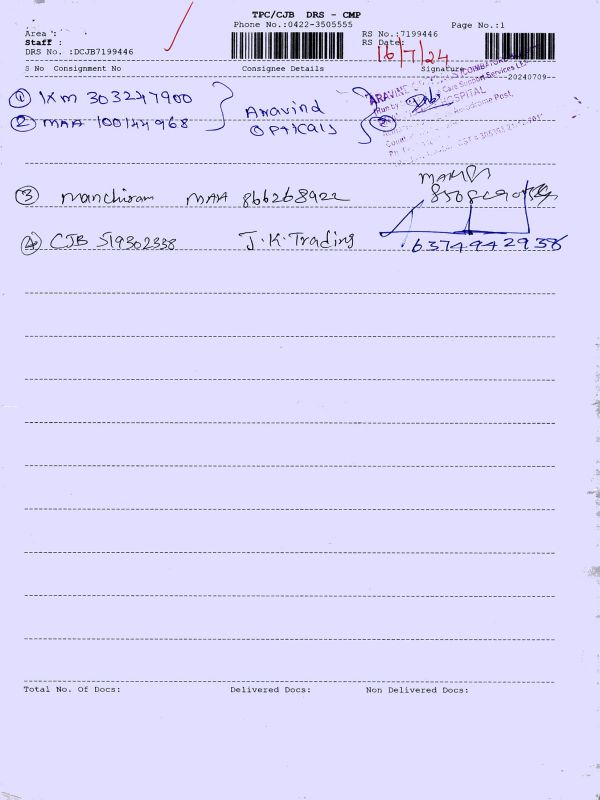 TPC/CJB DRS - CMP
Phone No.:0422-3505555
Page No.:1
Area :
Staff :
DRS No. :DCJB7199446
RS No.:7199446
RS Date:
16/7/24
S No Consignment No Consignee Details Signature
20240709
① IXM 303247900
② MAA 100144968
Aravind
Opticals
②
HOSPITAL
③ Manchiram MAA 866268922
④ CJB 519302338 J.K. Trading
6374942938
Total No. Of Docs: Delivered Docs: Non Delivered Docs: